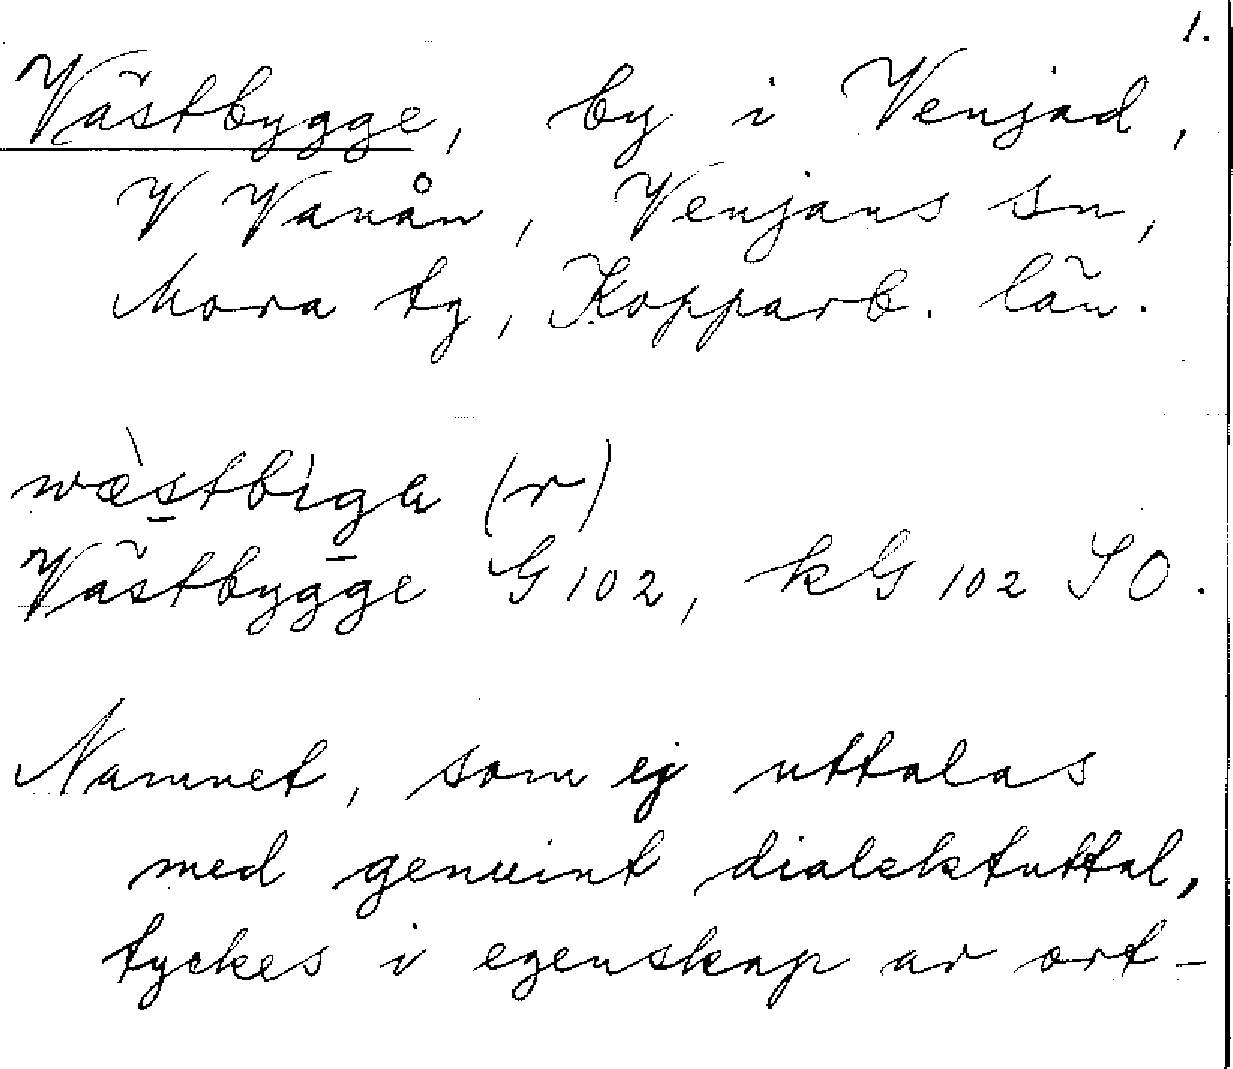 1.
Västbygge, by i Venjad,
V Vanån, Venjans sn,
Mora tg, Kopparb. län.
wæ̀stbìga (r)
Västbygge G 102, kG 102 SO.
Namnet, som ej uttalas
med genuint dialektuttal,
tyckes i egenskap av ort-